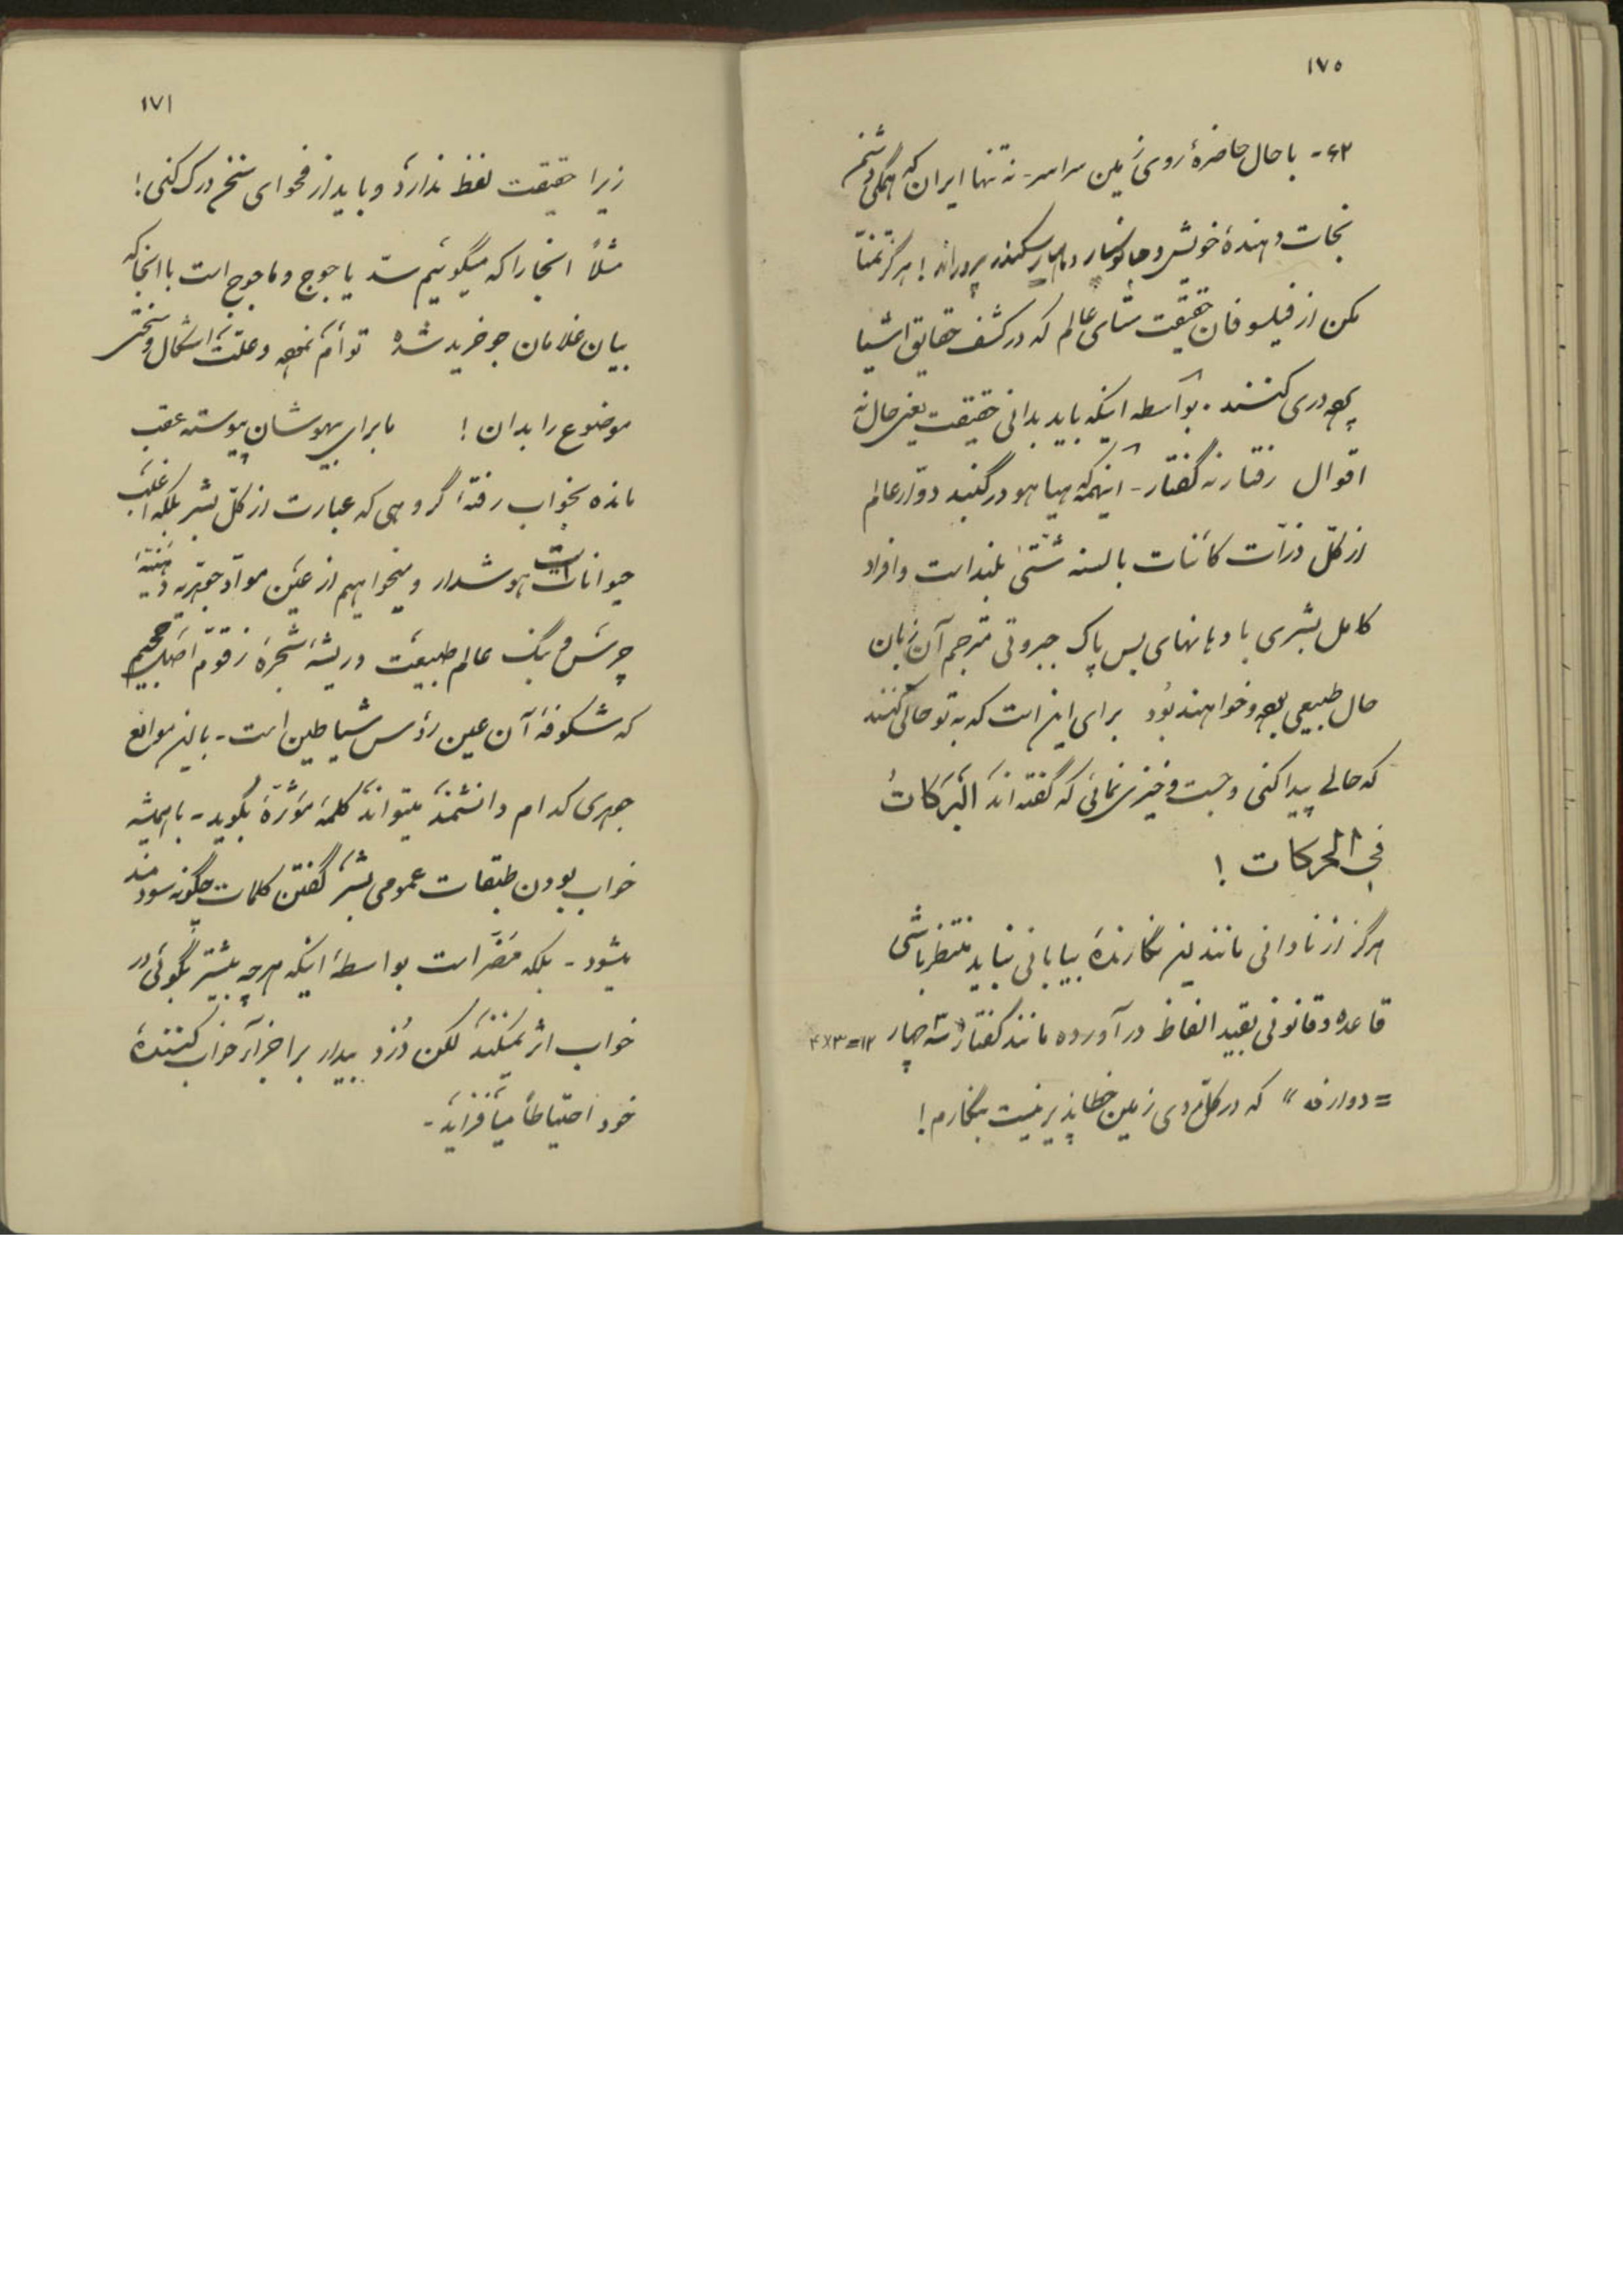 ۱۷۰
۶۲- با حال حاضرهٔ روی زمین سراسر- نه تنها ایران که همگی دشنم
نجات دهندهٔ خویش و جانوسیار و ماهیار سکندر پروراند! هرگز تمنّا
مکن از فیلسوفان حقیقت ستای عالم که در کشف حقایق اشیا
پرده‌دری کنند. بواسطه اینکه باید بدانی حقیقت یعنی حال نه
اقوال رفتار نه گفتار- اینهمه هیاهو در گنبد دوّار عالم
از کلّ ذرّات کائنات بالسنه شتّیٰ بلند است و افراد
کامل بشری با دهانهای بس پاک جبروتی مترجم آن زبان
حال طبیعی بوده و خواهند بُود برای این است که به تو حالی کنند
که حالے پیدا کنی و جست و خیزی نمائی که گفته‌اند اَلبَرَکاتُ
فی الحرکات!
هرگز از نادانی مانند این نگارندهٔ بیابانی نباید منتظر باشی
قاعده و قانونی بقید الفاظ در آورده مانند گفتار «سه چهار ۱۲=۳×۴
= دوازده» که در کلّ روی زمین خطاپذیر نیست بنگارم!
۱۷۱
زیرا حقیقت لفظ ندارد و باید از فحوای سخن درک کنی!
مثلاً اینجا را که میگوئیم سدّ یاجوج و ماجوج است با آنجا که
بیان غلامان جو خرید شده توأم نموده و علّت اشکال و سختی
موضوع را بدان! ما برای بیهوشان پیوسته عقب
مانده بخواب رفتهٔ گروهی که عبارت از کلّ بشر بلکه اغلب
حیوانات هوشدار و میخواهیم از عین موادّ جوهریه
چرس و بنگ عالم طبیعت و ریشهٔ شجرهٔ زقّوم اصل جحیم
که شکوفهٔ آن عین رؤس شیاطین است- با این موانع
جوهری کدام دانشمند میتواند کلمهٔ مؤثّره بگوید- با همیشه
خواب بودن طبقات عمومی بشر گفتن کلمات چگونه سودمند
میشود- بلکه مضّر است بواسطهٔ اینکه هرچه بیشتر بگوئی در
خواب اثر نمیکند لکن دُزد بیدار بر اجزآء خواب کنندهٔ
خود احتیاطاً میافزاید-